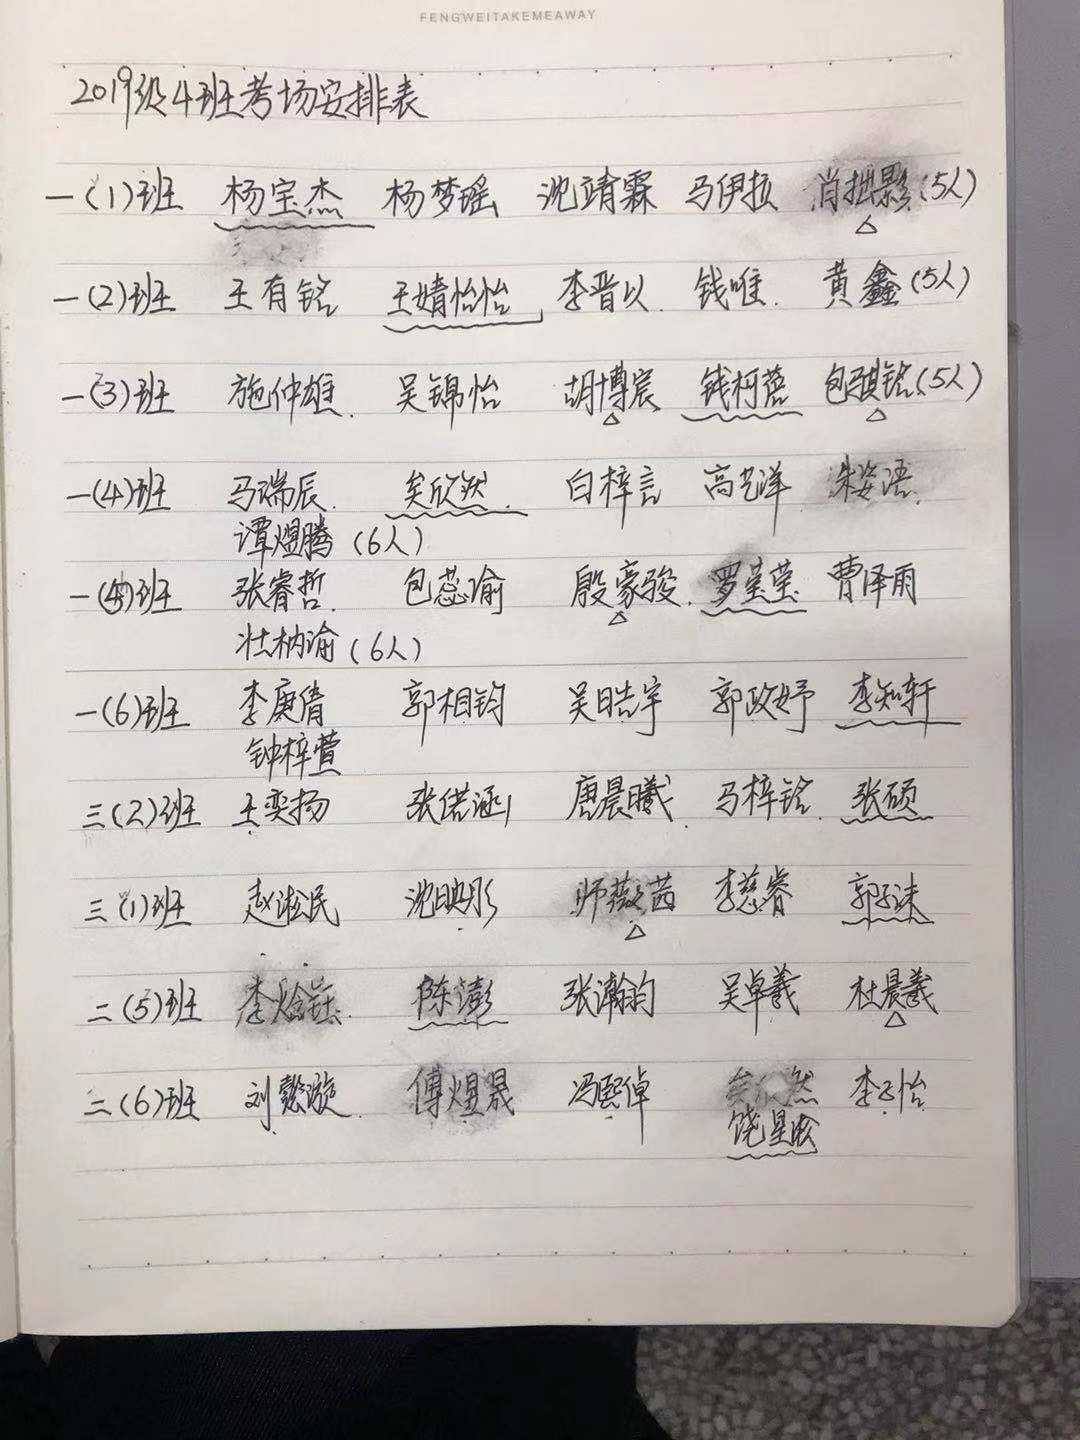 FENGWEITAKEMEAWAY
2019级4班考场安排表
一(1)班 杨宝杰 杨梦瑶 沈靖霖 马伊拉 肖拙影(5人)
一(2)班 王有铭 王婧怡怡 李晋以 钱唯 黄鑫(5人)
一(3)班 施仲雄 吴锦怡 胡博宸 钱柯蓓 包骐铭(5人)
一(4)班 马瑞辰 矣欣然 白梓言 高艺洋 朱姿语
谭煜腾(6人)
一(5)班 张睿哲 包蕊瑜 殷豪骏 罗莹莹 曹泽雨
(6人)
一(6)班 李庚倩 郭相钧 吴晧宇 郭政妤 李知轩
钟梓萱
三(2)班 王奕扬 张偌涵 唐晨曦 马梓铭 张硕
三(1)班 赵淞民 沈映彤 师薇茜 李慈睿 郭子
二(5)班 李 陈澎 张瀚钧 吴卓羲 杜晨羲
二(6)班 刘懿漩 傅煜晟 冯熙倬 李子怡
饶星